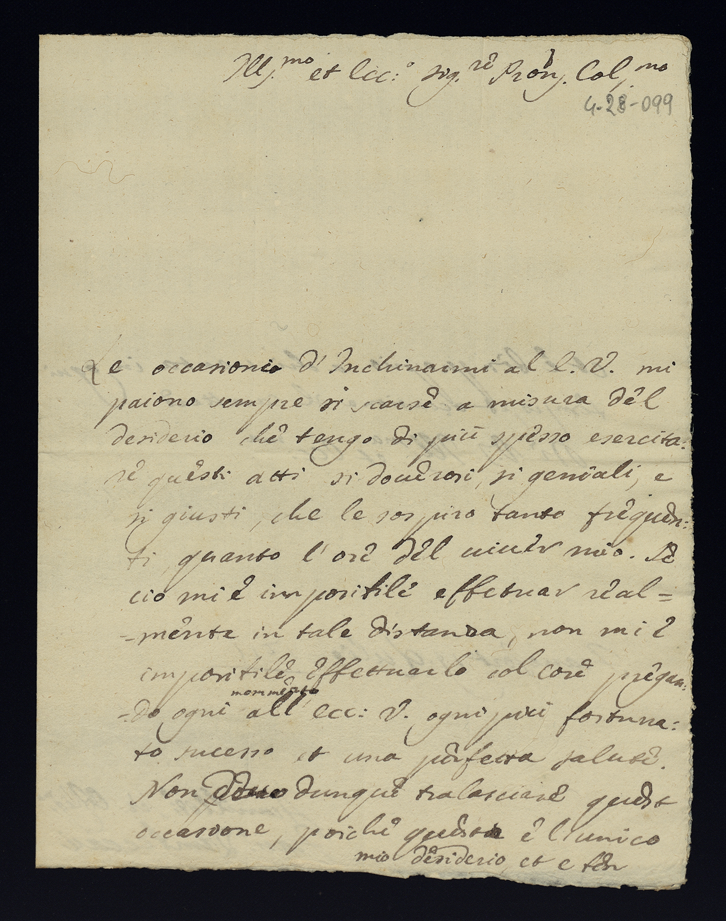 Ill.mo et Ecc.o Sig.re Pron. Col.mo
4-28-099
Le occasionio d'Inchinarmi al E. V. mi
paiono sempre si scarse a misura del
desiderio che tengo di più spesso esercita:
re questi atti si douerosi, si geniali, e
si giusti, che le sospiro tanto frequen:
ti, quanto l'ore del uiuer mio. Se
cio mi è impossibile effetuar real=
=mente in tale distanza, non mi è
impossibile effettuarlo col core pregan:
mommento
=do ogni all' Ecc: V. ogni più fortuna:
to sucesso et una perfecta salute.
Non deuo dunque tralasciare quest
occasione, poiche questa è l'unico
mio desiderio, et e